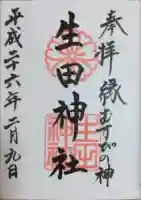 奉拝 縁むすびの神
生田神社
平成二十六年二月九日